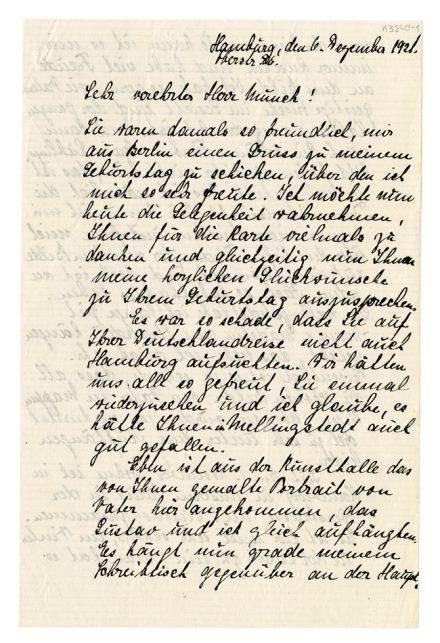 K3240-1
Hamburg, den 6. Dezember 1921.
36.
Sehr verehrter Herr Munch!
Sie waren damals so freundlich, mir
aus Berlin einen Gruss zu meinem
Geburtstag zu schicken, über den ich
mich so sehr freute. Ich möchte nun
heute die Gelegenheit wahrnehmen,
Ihnen für die Karte vielmals zu
danken und gleichzeitig nun Ihnen
meine herzlichen Glückwünsche
zu Ihrem Geburtstag auszusprechen.
Es war so schade, dass Sie auf
Ihrer Deutschlandreise nicht auch
Hamburg aufsuchten. Wir hätten
uns alle so gefreut, Sie einmal
wiederzusehen und ich glaube, es
hätte Ihnen in Mellingstedt auch
gut gefallen.
Eben ist aus der Kunsthalle das
von Ihnen gemalte Portrait von
Vater hier angekommen, das
Gustav und ich gleich aufhängten.
Es hängt nun grade meinem
Schreibtisch gegenüber an der Haupt